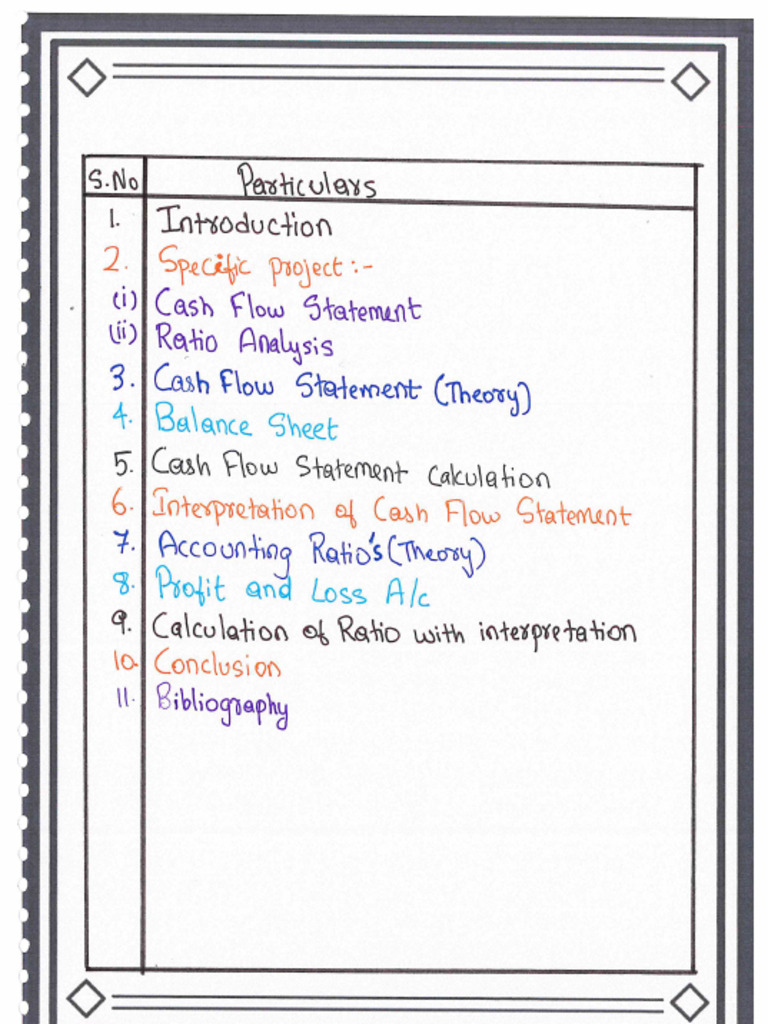 S.No Particulars
1. Introduction
2. Specific project:-
(i) Cash Flow Statement
(ii) Ratio Analysis
3. Cash Flow Statement (Theory)
4. Balance Sheet
5. Cash Flow Statement Calculation
6. Interpretation of Cash Flow Statement
7. Accounting Ratio's (Theory)
8. Profit and Loss A/c
9. Calculation of Ratio with interpretation
10. Conclusion
11. Bibliography